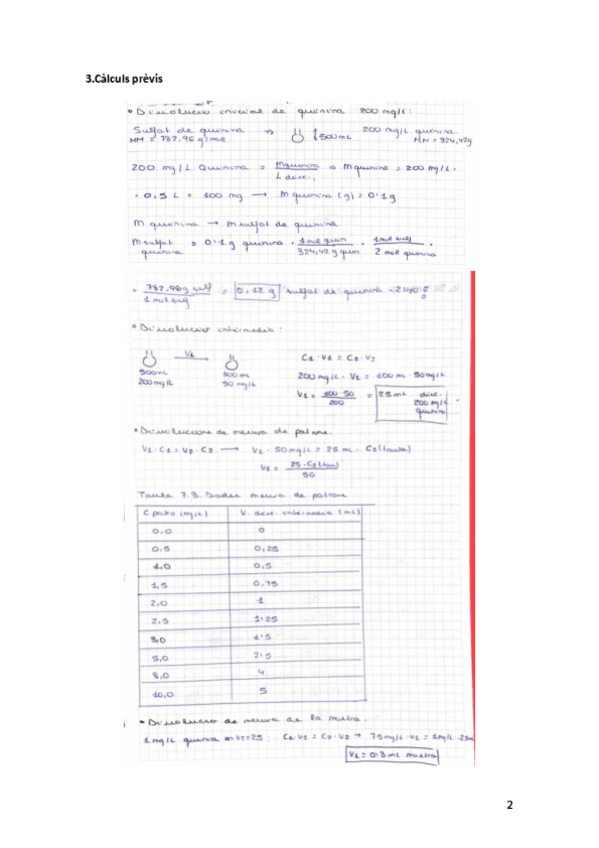 3.Càlculs prèvis
• Dissolució inicial de quinina 200 mg/L:
Sulfat de quinina → 500mL 200 mg/L quinina
MM = 782,96 g/mol MM = 324,42g
200 mg/L Quinina = m quinina / L diss. → m quinina = 200 mg/L ·
· 0,5 L = 100 mg → m quinina (g) = 0'1g
m quinina → m sulfat de quinina
m sulfat quinina = 0'1 g quinina · 1 mol quin / 324,42 g quin · 1 mol sulf / 2 mol quinina ·
· 782,96g sulf / 1 mol sulf = 0.12 g sulfat de quinina · 2H2O
• Dissolució intermèdia:
V1
500mL 100 mL
200mg/L 50 mg/L
C1 · V1 = C2 · V2
200 mg/L · V1 = 100 mL · 50mg/L
V1 = 100 · 50 / 200 = 25 mL diss. 200 mg/L quinina
• Dissolucions de mesura de patrons.
V1 · C1 = V2 · C2 → V1 · 50mg/L = 25 mL · C2(taula)
V1 = 25 · C2(tau) / 50
Taula 7.3. Dades mesura de patrons
C patró (mg/L) V. diss. intermèdia (mL)
0,0 0
0.5 0,25
1,0 0,5
1,5 0.75
2,0 1
2,5 1'25
3,0 1'5
5,0 2'5
8,0 4
10,0 5
• Dissolució de mesura de la mostra.
1 mg/L quinina en V=25: C1 · V1 = C2 · V2 → 75mg/L · V1 = 1mg/L · 25m
V1 = 0'3 mL mostra
2